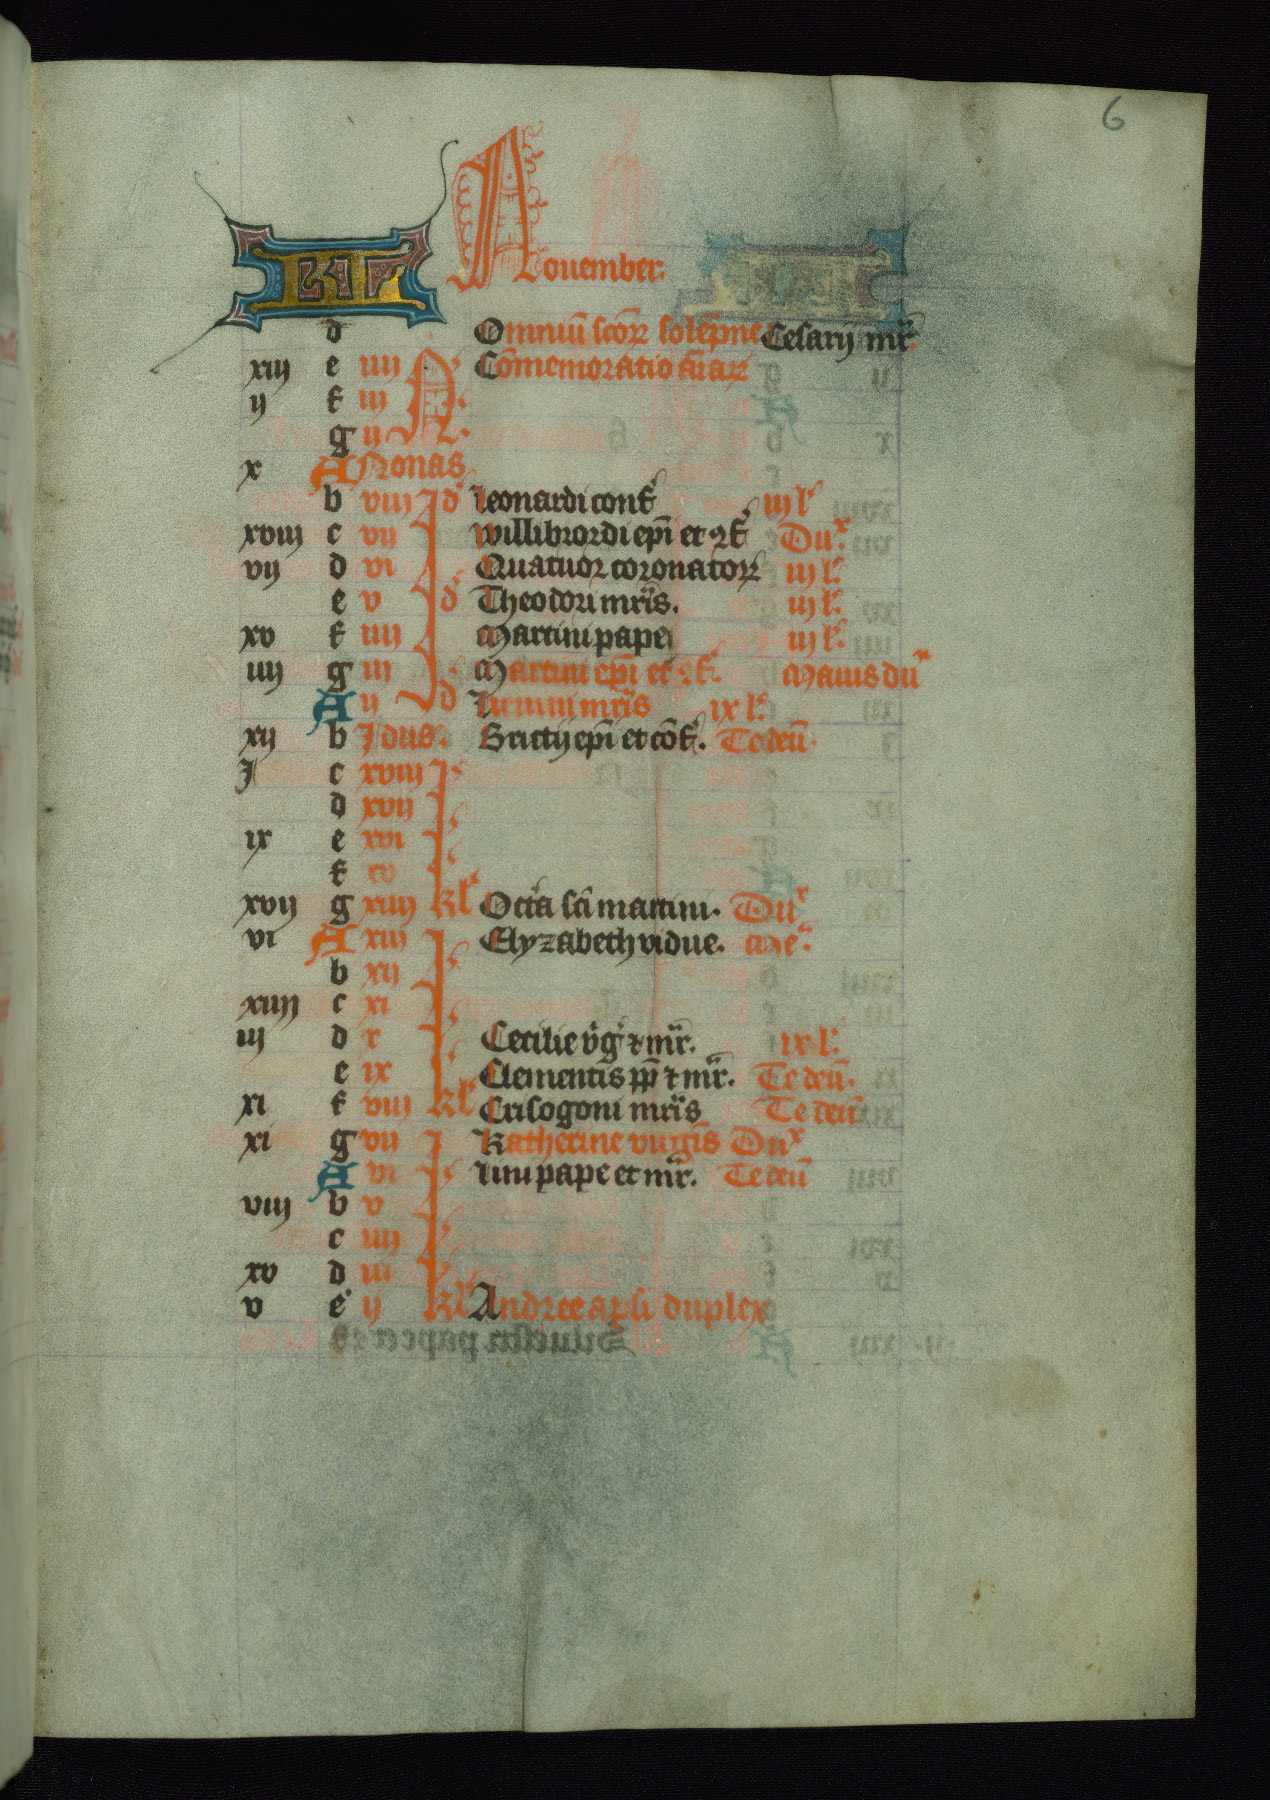 6
KL Nouember.
d Omniū scōꝝ solēpne Cesarij mr̄.
xiij e iiij N͛ Cōmemoratio aīaꝝ
ij f iij N͛
g ij N͛
x A Nonas
b viij Id͛ Leonardi conf͛ iij l͛
xviij c vij Willibrordi epī et ꝯf͛ Duˣ
vij d vi Quatuor coronatoꝝ iij l͛
e v Id͛ Theodori mr̄is. iij l͛
xv f iiij Martini pape iij l͛
iiij g iij Martini epī et ꝯf͛. Maius du
A ij Id͛ mr̄is ix l͛
xij b Idus. Brictij epī et cōf͛. Te deū.
I c xviij
d xvij
ix e xvi
f xv
xvij g xiiij Kl͛ Octa͛ sc̄i martini. Duˣ
vi A xiij Elyzabeth vidue. Me͛.
b xij
xiiij c xi
iij d x Cecilie v͛g͛ ⁊ mr̄. ix l͛
e ix Clementis pp̄ ⁊ mr̄. Te deū.
xi f viij Kl͛ Crisogoni mr̄is Te deū
xi g vij Katherine virgīs Duˣ
A vi Lini pape et mr̄. Te deū
viij b v
c iiij
xv d iii
v e ij Kl͛ Andree apl̄i duplex